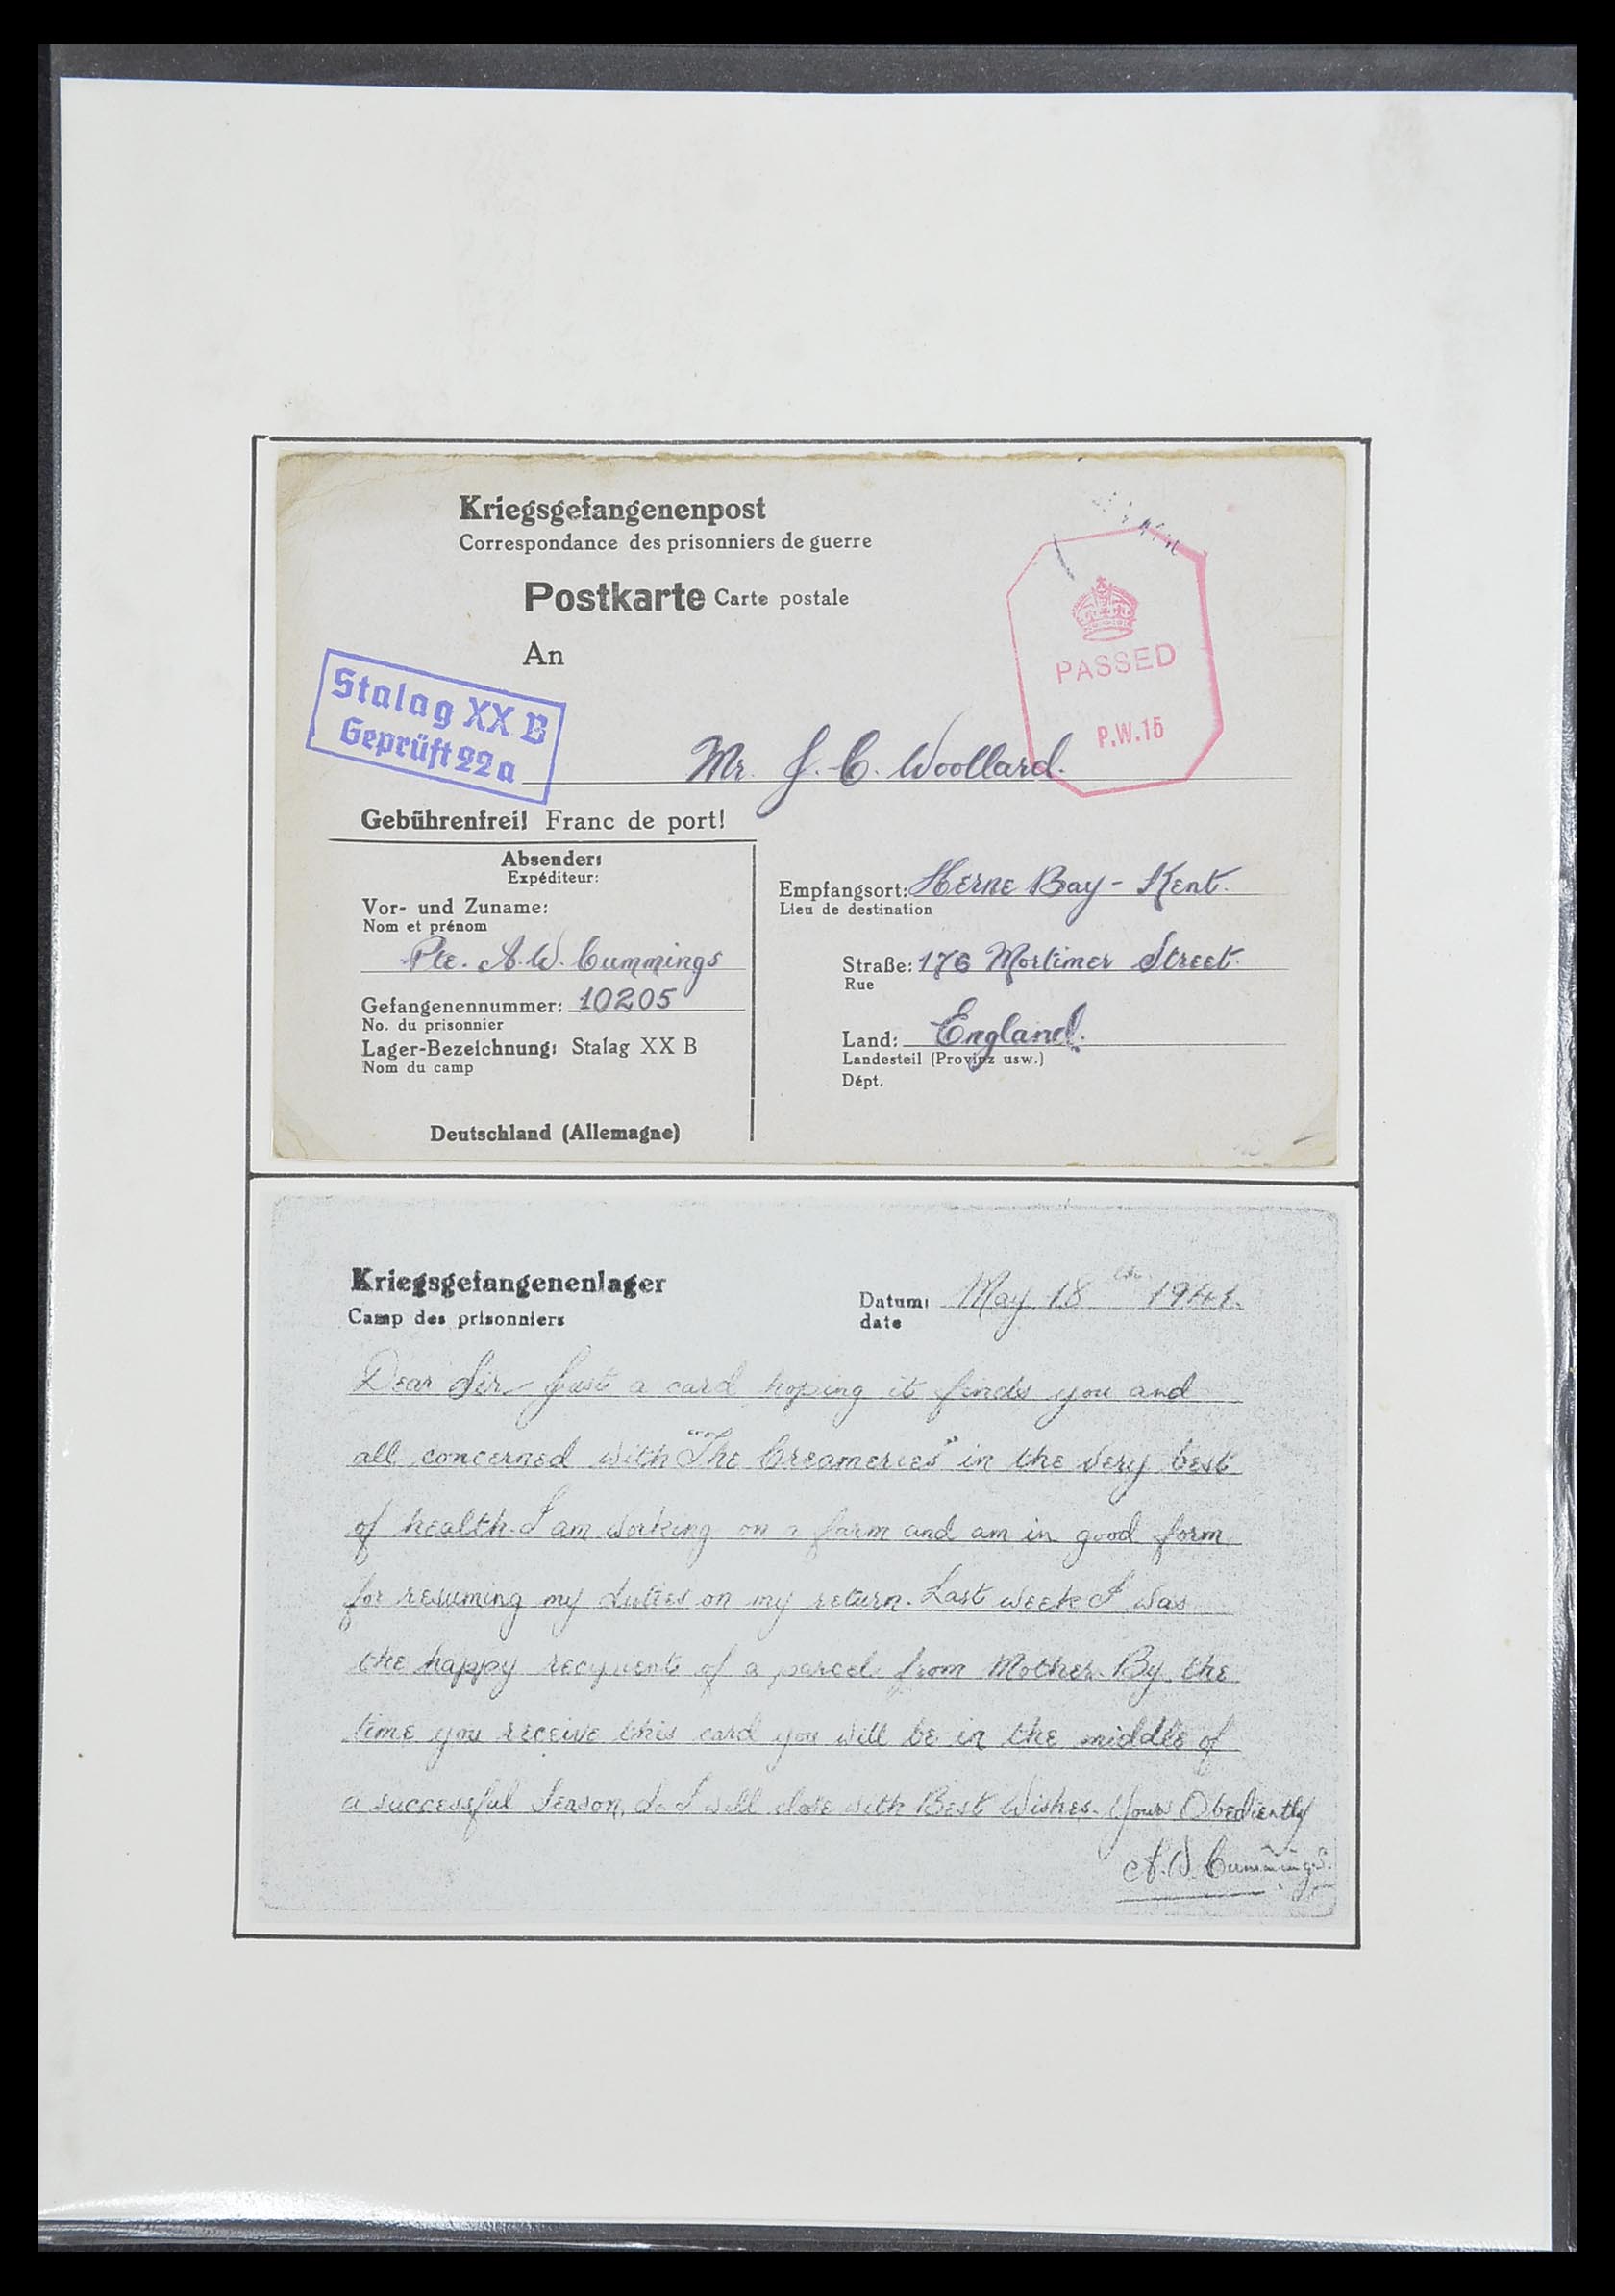 Kriegsgefangenenpost
Correspondance des prisonniers de guerre
Postkarte Carte postale
An
PASSED
P.W.15
Stalag XX B
Geprüft 22a
Mr. J. C. Woollard.
Gebührenfrei! Franc de port!
Absender:
Expéditeur:
Vor- und Zuname:
Nom et prénom
Pte. A. W. Cummings
Gefangenennummer: 10205
No. du prisonnier
Lager-Bezeichnung: Stalag XX B
Nom du camp
Deutschland (Allemagne)
Empfangsort: Herne Bay - Kent.
Lieu de destination
Straße: 176 Mortimer Street.
Rue
Land: England.
Landesteil (Provinz usw.)
Dépt.
Kriegsgefangenenlager
Camp des prisonniers
Datum: May 18th 1941.
date
Dear Sir - Just a card hoping it finds you and
all concerned with "The Creameries" in the very best
of health. I am working on a farm and am in good form
for resuming my duties on my return. Last week I was
the happy recipient of a parcel from Mother. By the
time you receive this card you will be in the middle of
a successful Season, So I will close with Best Wishes. Yours Obediently
A. W. Cummings.